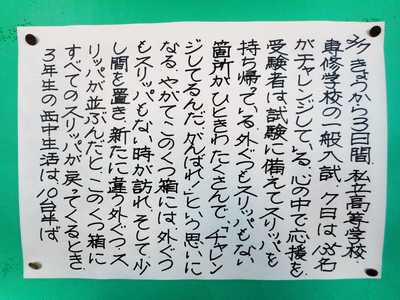 2/7 きょうから3日間、私立高等学校
専修学校の一般入試。7日は、名
がチャレンジしている。心の中で応援を
受験者は、試験に備えてスリッパを
持ち帰っている。外ぐつもスリッパもない
箇所がひときわたくさんで、「チャレン
ジしてるんだ、がんばれ!」という思いに
なる。やがて、このくつ箱には、外ぐつ
もスリッパもない時が訪れ、そして少
し間を置き、新たに違う外ぐつ、ス
リッパが並ぶんだと。このくつ箱に
すべてのスリッパが戻ってくるとき、
3年生の西中生活は、10台半ば。